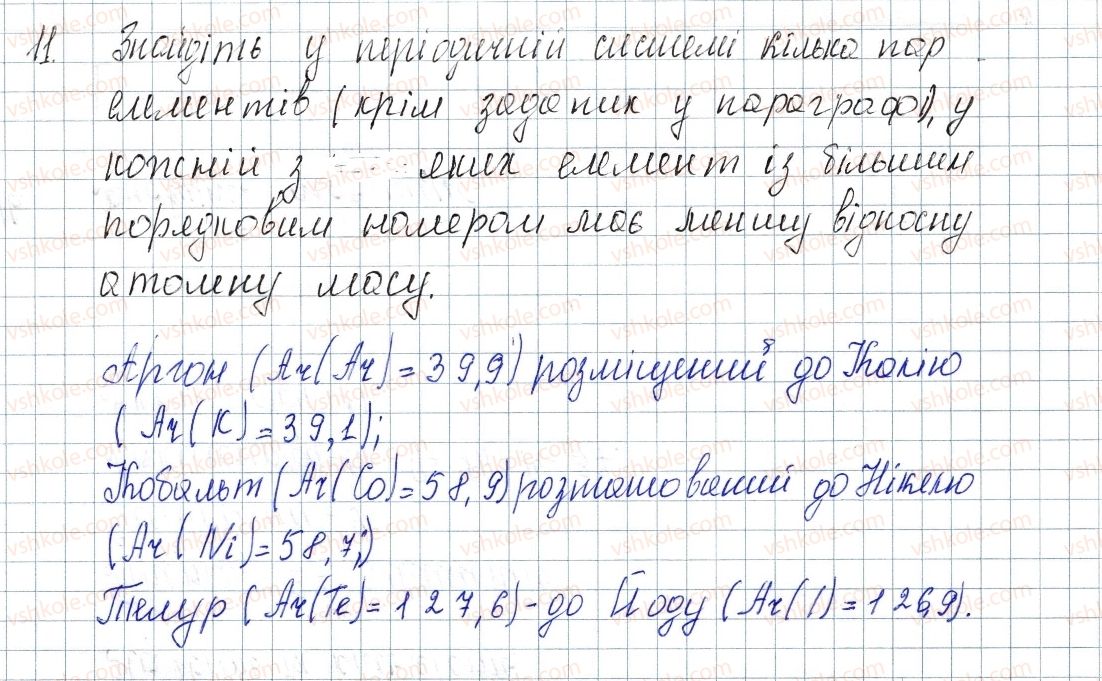 11. Знайдіть у періодичній системі кілька пар
елементів (крім заданих у параграфі), у
кожній з яких елемент із більшим
порядковим номером має меншу відносну
атомну масу.
Аргон (Ar(Ar) = 39,9) розміщений до Калію
(Ar(K) = 39,1);
Кобальт (Ar(Co) = 58,9) розташований до Нікелю
(Ar(Ni) = 58,7;)
Телур (Ar(Te) = 127,6) - до Йоду (Ar(I) = 126,9).